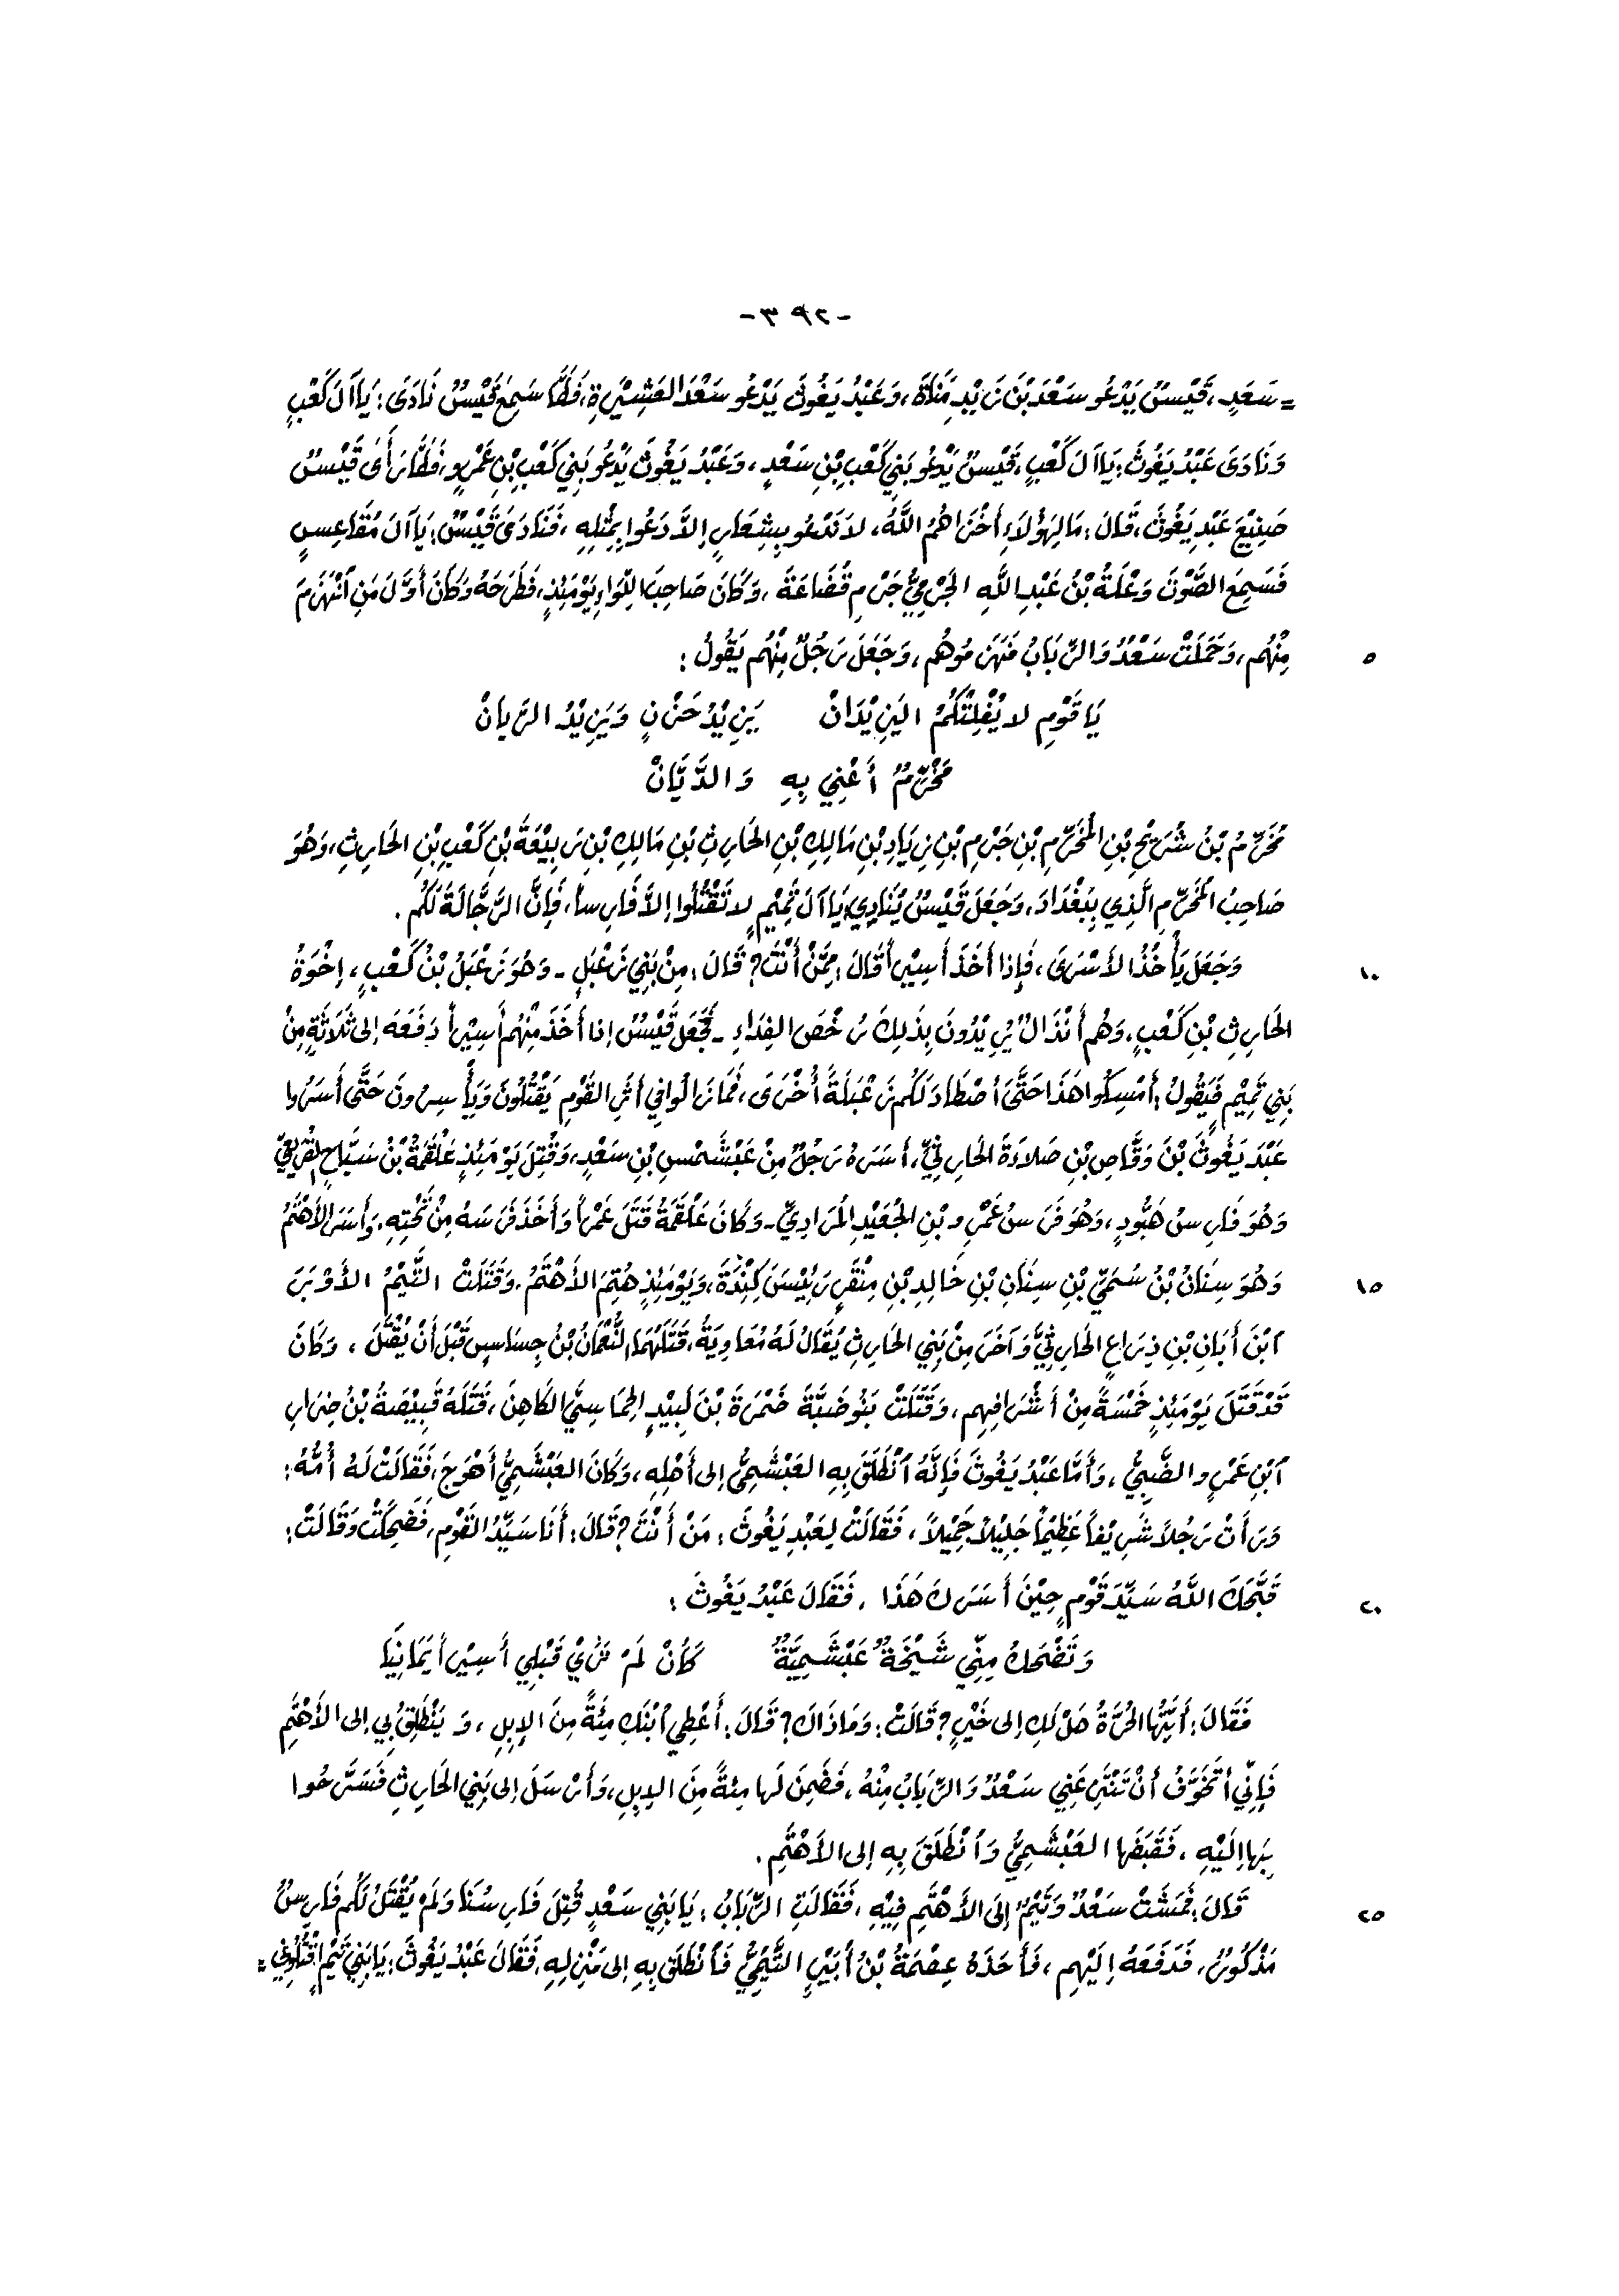 -٣٩٢-
= سَعَدٍ، قَيْسٌ يَدْعُو سَعْدَ بْنَ زَيْدِ مَنَاةَ، وَعَبْدُ يَغُوثَ يَدْعُو سَعْدَ العَشِيْرَةِ، فَلَمَّا سَمِعَ قَيْسٌ نَادَى: يَاآلَ كَعْبٍ
وَنَادَى عَبْدُ يَغُوثَ: يَاآلَ كَعْبٍ، قَيْسٌ يَدْعُو بَنِي كَعْبِ بْنِ سَعْدٍ، وَعَبْدُ يَغُوثَ يَدْعُو بَنِي كَعْبِ بْنِ عَمْرٍو، فَلَمَّا رَأَى قَيْسٌ
صَنِيْعَ عَبْدِ يَغُوثَ، قَالَ: مَا لِهَؤُلاَءِ أَخْزَاهُمُ اللَّهُ، لاَ نَدْعُو بِشِعَارٍ إِلاَّ دَعُوا بِمِثْلِهِ، فَنَادَى قَيْسٌ: يَاآلَ مُقَاعِسٍ
فَسَمِعَ الصَّوْتَ وَعْلَةُ بْنُ عَبْدِ اللَّهِ الجَرْمِيُّ جَرْمِ قُضَاعَةَ، وَكَانَ صَاحِبَ اللِّوَاءِ يَوْمَئِذٍ، فَطَرَحَهُ وَكَانَ أَوَّلَ مَنِ ٱنْهَزَمَ
٥ مِنْهُم، وَحَمَلَتْ سَعْدٌ وَالرِّبَابُ فَهَزَمُوهُم، وَجَعَلَ رَجُلٌ مِنْهُم يَقُولُ:
يَا قَوْمِ لا يُفْلِتْكُمُ اليَزِيْدَانْ يَزِيْدُ حَزْنٍ وَيَزِيْدُ الرَّيانْ
مُخَرِّمٌ أَعْنِي بِهِ وَالدَّيَّانْ
مُخَرِّمُ بْنُ شُرَيْحِ بْنِ المُخَرِّمِ بْنِ جَرْمِ بْنِ زِيَادِ بْنِ مَالِكِ بْنِ الحَارِثِ بْنِ مَالِكِ بْنِ رَبِيْعَةَ بْنِ كَعْبِ بْنِ الحَارِثِ، وَهُوَ
صَاحِبُ المُخَرِّمِ الَّذِي بِبَغْدَادَ، وَجَعَلَ قَيْسٌ يُنَادِي: يَاآلَ تَمِيْمٍ لا تَقْتُلُوا إِلاَّ فَارِساً، فَإِنَّ الرَّجَّالَةَ لَكُم.
١٠ وَجَعَلَ يَأْخُذُ الأَسْرَى، فَإِذا أَخَذَ أَسِيْراً قَالَ: مِمَّنْ أَنْتَ؟ قَالَ: مِنْ بَنِي زَعْبَلٍ - وَهُوَ زَعْبَلُ بْنُ كَعْبٍ، إِخْوَةُ
الحَارِثِ بْنِ كَعْبٍ، وَهُم أَنْذَالٌ يُرِيْدُونَ بِذَلِكَ رُخْصَ الفِدَاءِ - فَجَعَلَ قَيْسٌ إِذا أَخَذَ مِنْهُم أَسِيْراً دَفَعَهُ إِلى ثَلاَثَةٍ مِنْ
بَنِي تَمِيْمٍ فَيَقُولُ: أَمْسِكُوا هَذَا حَتَّى أَصْطَادَ لَكُم زَعْبَلَةً أُخْرَى، فَمَا زَالُوا فِي أَثَرِ القَوْمِ يَقْتُلُونَ وَيَأْسِرُونَ حَتَّى أَسَرُوا
عَبْدَ يَغُوثَ بْنَ وَقَّاصِ بْنِ صَلاَءَةَ الحَارِثِيَّ، أَسَرَهُ رَجُلٌ مِنْ عَبْشَمْسِ بْنِ سَعْدٍ، وَقُتِلَ يَوْمَئِذٍ عَلْقَمَةُ بْنُ سَبَّاحٍ القُرَيْعِيُّ
وَهُوَ فَارِسُ هَبُّودٍ، وَهُوَ فَرَسُ عَمْرِو بْنِ الجُعَيْدِ المُرَادِيِّ - وَكَانَ عَلْقَمَةُ قَتَلَ عَمْراً وَأَخَذَ فَرَسَهُ مِنْ تَحْتِهِ، وَأَسَرَ الأَهْتَمُ
١٥ وَهُوَ سِنَانُ بْنُ سُمَيِّ بْنِ سِنَانِ بْنِ خَالِدِ بْنِ مِنْقَرٍ رَئِيْسَ كِنْدَةَ، وَيَوْمَئِذٍ هُتِمَ الأَهْتَمُ، وَقَتَلَتْ التَّيْمُ الأَوْبَرَ
ٱبْنَ أَبَانِ بْنِ ذِرَاعٍ الحَارِثِيَّ وَآخَرَ مِنْ بَنِي الحَارِثِ يُقَالُ لَهُ مُعَاوِيَةُ، قَتَلَهُمَا النُّعْمَانُ بْنُ جِسَاسٍ قَبْلَ أَنْ يُقْتَلَ، وَكَانَ
قَدْ قَتَلَ يَوْمَئِذٍ خَمْسَةً مِنْ أَشْرَافِهِم، وَقَتَلَتْ بَنُو ضَبَّةَ ضَمْرَةَ بْنَ لَبِيْدٍ الحِمَاسِيَّ الكَاهِنَ، قَتَلَهُ قَبِيْصَةُ بْنُ ضِرَارِ
ٱبْنِ عَمْرٍو الضَّبِيُّ، وَأَمَّا عَبْدُ يَغُوثَ فَإِنَّهُ ٱنْطَلَقَ بِهِ العَبْشَمِيُّ إِلى أَهْلِهِ، وَكَانَ العَبْشَمِيُّ أَهْوَجَ، فَقَالَتْ لَهُ أُمُّهُ:
وَرَأَتْ رَجُلاً شَرِيْفاً عَظِيْماً جَلِيْلاً جَمِيْلاً، فَقَالَتْ لِعَبْدِ يَغُوثَ: مَنْ أَنْتَ؟ قَالَ: أَنَا سَيِّدُ القَوْمِ، فَضَحِكَتْ وَقَالَتْ:
٢٠ قَبَّحَكَ اللَّهُ سَيِّدَ قَوْمٍ حِيْنَ أَسَرَكَ هَذَا، فَقَالَ عَبْدُ يَغُوثَ:
وَتَضْحَكُ مِنِّي شَيْخَةٌ عَبْشَمِيَّةٌ كَأَنْ لَمْ تَرَيْ قَبْلِي أَسِيْراً يَمَانِيَا
فَقَالَ: أَيَّتُهَا الحُرَّةُ هَلْ لَكِ إِلى خَيْرٍ؟ قَالَتْ: وَمَا ذَاكَ؟ قَالَ: أُعْطِي ٱبْنَكِ مِئَةً مِنَ الإِبِلِ، وَيَنْطَلِقُ بِي إِلى الأَهْتَمِ
فَإِنِّي أَتَخَوَّفُ أَنْ تَنْتَزِعَنِي سَعْدٌ وَالرِّبَابُ مِنْهُ، فَضَمِنَ لَهَا مِئَةً مِنَ الإِبِلِ، وَأَرْسَلَ إِلى بَنِي الحَارِثِ فَسَرَّحُوا
بِهَا إِلَيْهِ، فَقَبَضَهَا العَبْشَمِيُّ وَٱنْطَلَقَ بِهِ إِلى الأَهْتَمِ.
٢٥ قَالَ: فَمَشَتْ سَعْدٌ وَتَيْمٌ إِلَى الأَهْتَمِ فِيْهِ، فَقَالَتِ الرِّبَابُ: يَا بَنِي سَعْدٍ قُتِلَ فَارِسُنَا وَلَمْ يُقْتَلْ لَكُم فَارِسٌ
مَذْكُورٌ، فَدَفَعَهُ إِلَيْهِم، فَأَخَذَهُ عِصْمَةُ بْنُ أُبَيْرٍ التَّيْمِيُّ فَٱنْطَلَقَ بِهِ إِلى مَنْزِلِهِ، فَقَالَ عَبْدُ يَغُوثَ: يَا بَنِي تَيْمٍ ٱقْتُلُونِي =